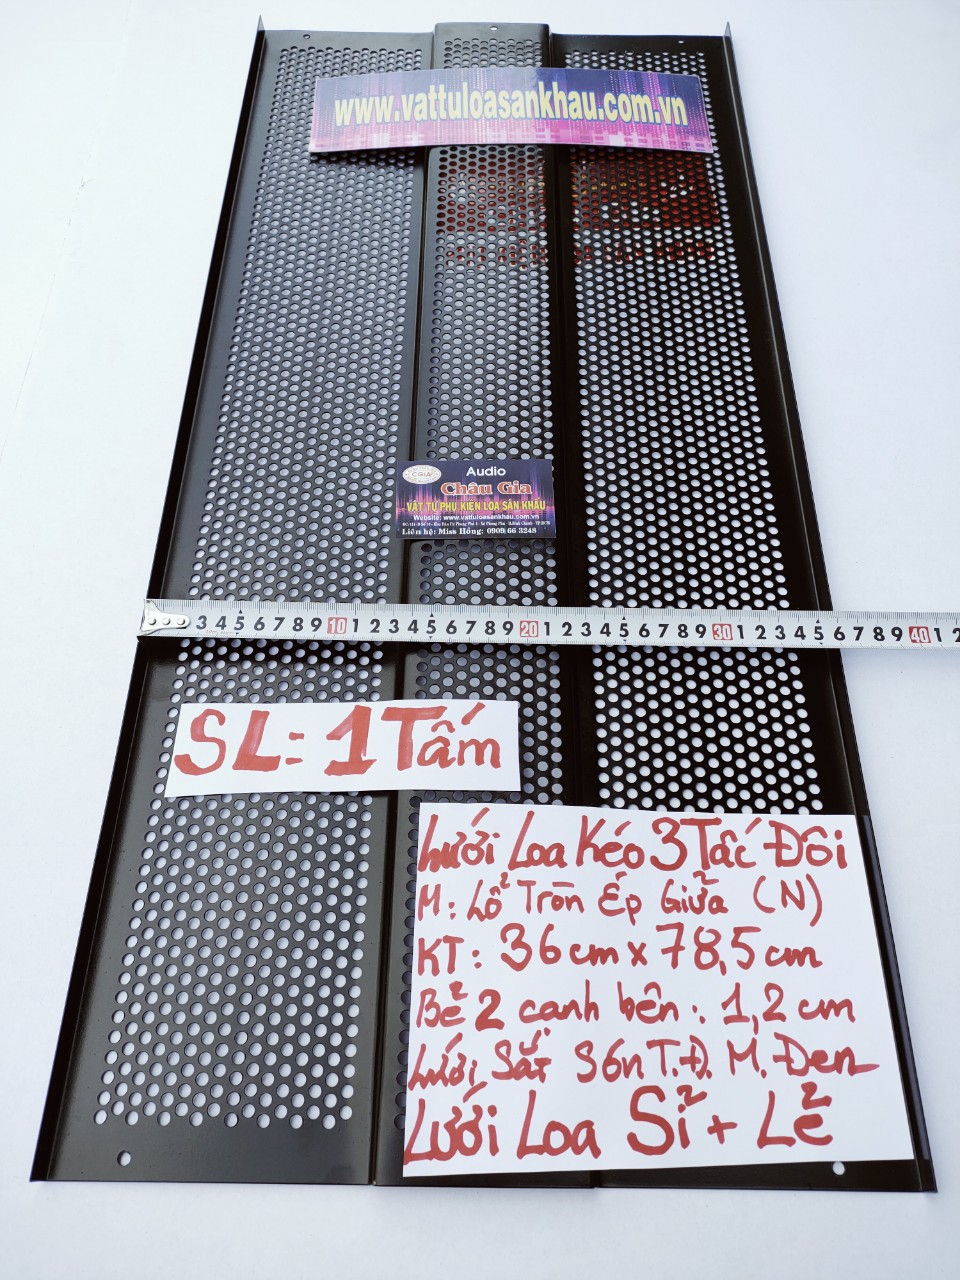 www.vattuloasankhau.com.vn
CGIA
Audio
Châu Gia
VẬT TƯ PHỤ KIỆN LOA SÂN KHẤU
Website: www.vattuloasankhau.com.vn
Liên hệ: Miss Hồng: 0909 66 3248
3 4 5 6 7 8 9 10 1 2 3 4 5 6 7 8 9 20 1 2 3 4 5 6 7 8 9 30 1 2 3 4 5 6 7 8 9 40 1 2
SL: 1 Tấm
Lưới Loa Kéo 3 Tấc Đôi
M: Lổ Tròn Ép Giữa (N)
KT: 36cm x 78,5cm
Bẻ 2 cạnh bên: 1,2 cm
Lưới Sắt Sơn T.Đ. M. Đen
Lưới Loa Sỉ + Lẻ